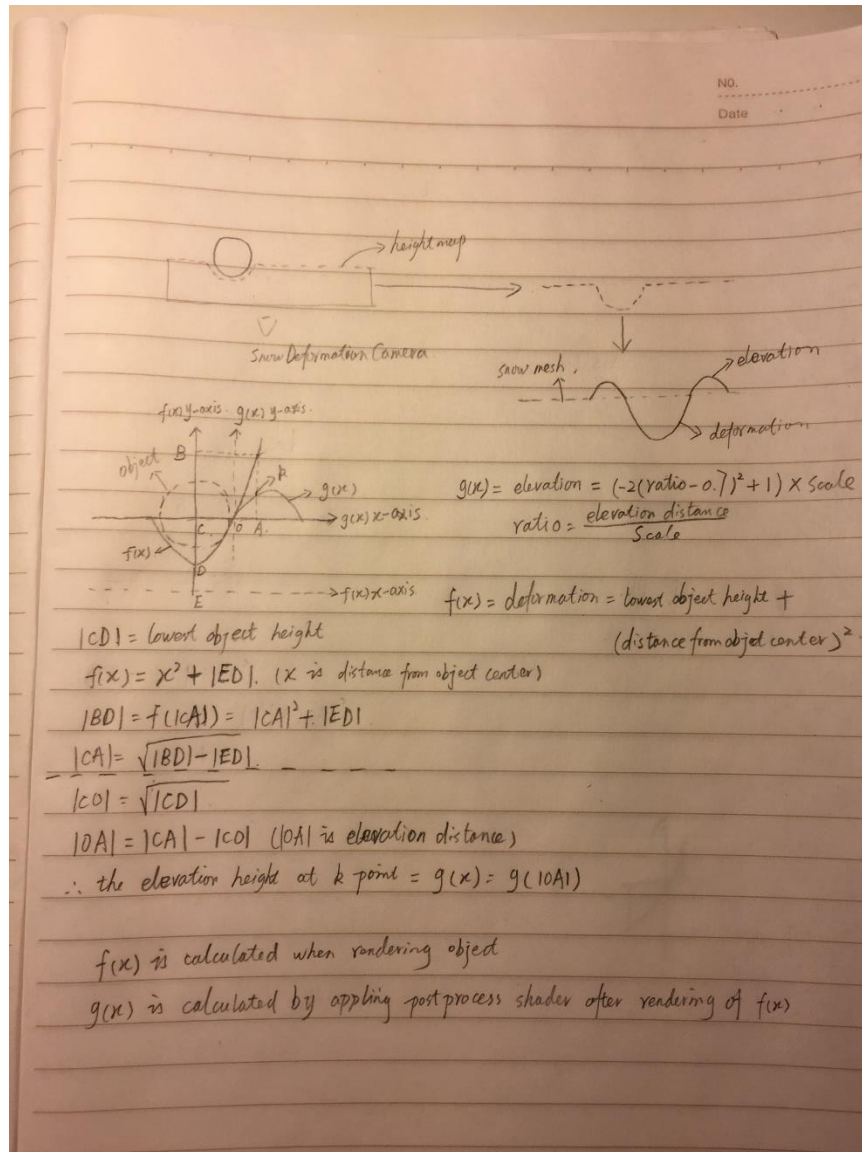 NO.
Date
height map
Snow Deformation Camera
snow mesh.
elevation
deformation
f(x) y-axis. g(x) y-axis.
object
B
k
g(x)
C
O
A.
g(x) x-axis.
f(x)
D
E
f(x) x-axis
g(x) = elevation = (-2(ratio - 0.7)² + 1) × Scale
ratio = elevation distance / Scale
f(x) = deformation = lowest object height +
(distance from object center)².
|CD| = lowest object height
f(x) = x² + |ED|. (x is distance from object center)
|BD| = f(|CA|) = |CA|² + |ED|
|CA| = √|BD| - |ED|.
|CO| = √|CD|
|OA| = |CA| - |CO| (|OA| is elevation distance)
∴ the elevation height at k point = g(x) = g(|OA|)
f(x) is calculated when rendering object
g(x) is calculated by appling postprocess shader after rendering of f(x)